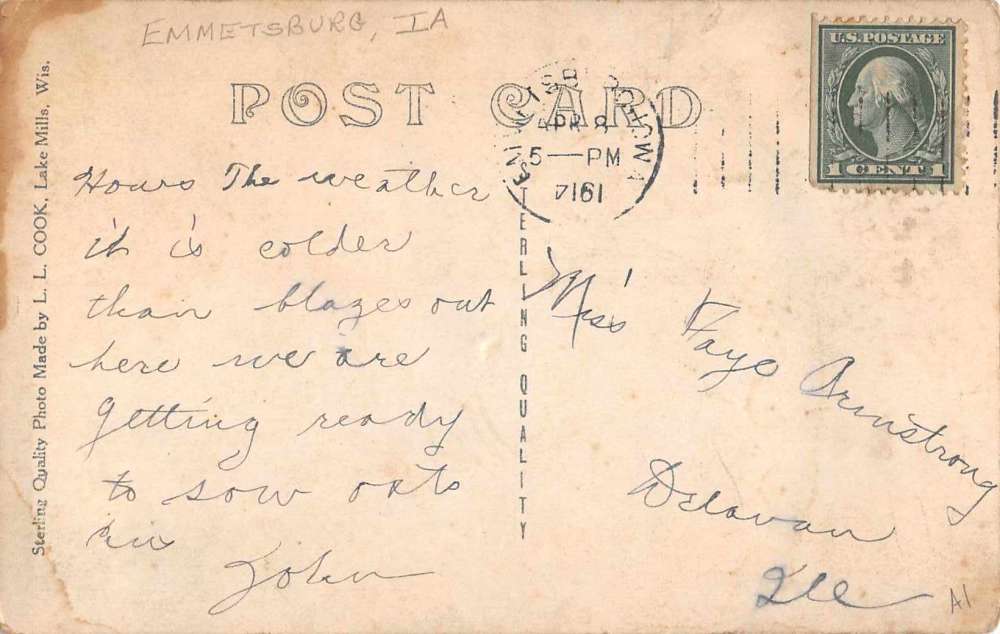 EMMETSBURG, IA
POST CARD
U.S. POSTAGE
1 CENT 1
APR 8
5—PM
IOWA
Hows The weather
it is colder
than blazes out
here we are
getting ready
to sow oats
John
Miss Faye Armstrong
Delavan
Ill
STERLING QUALITY
Sterling Quality Photo Made by L. L. COOK, Lake Mills, Wis.
A1